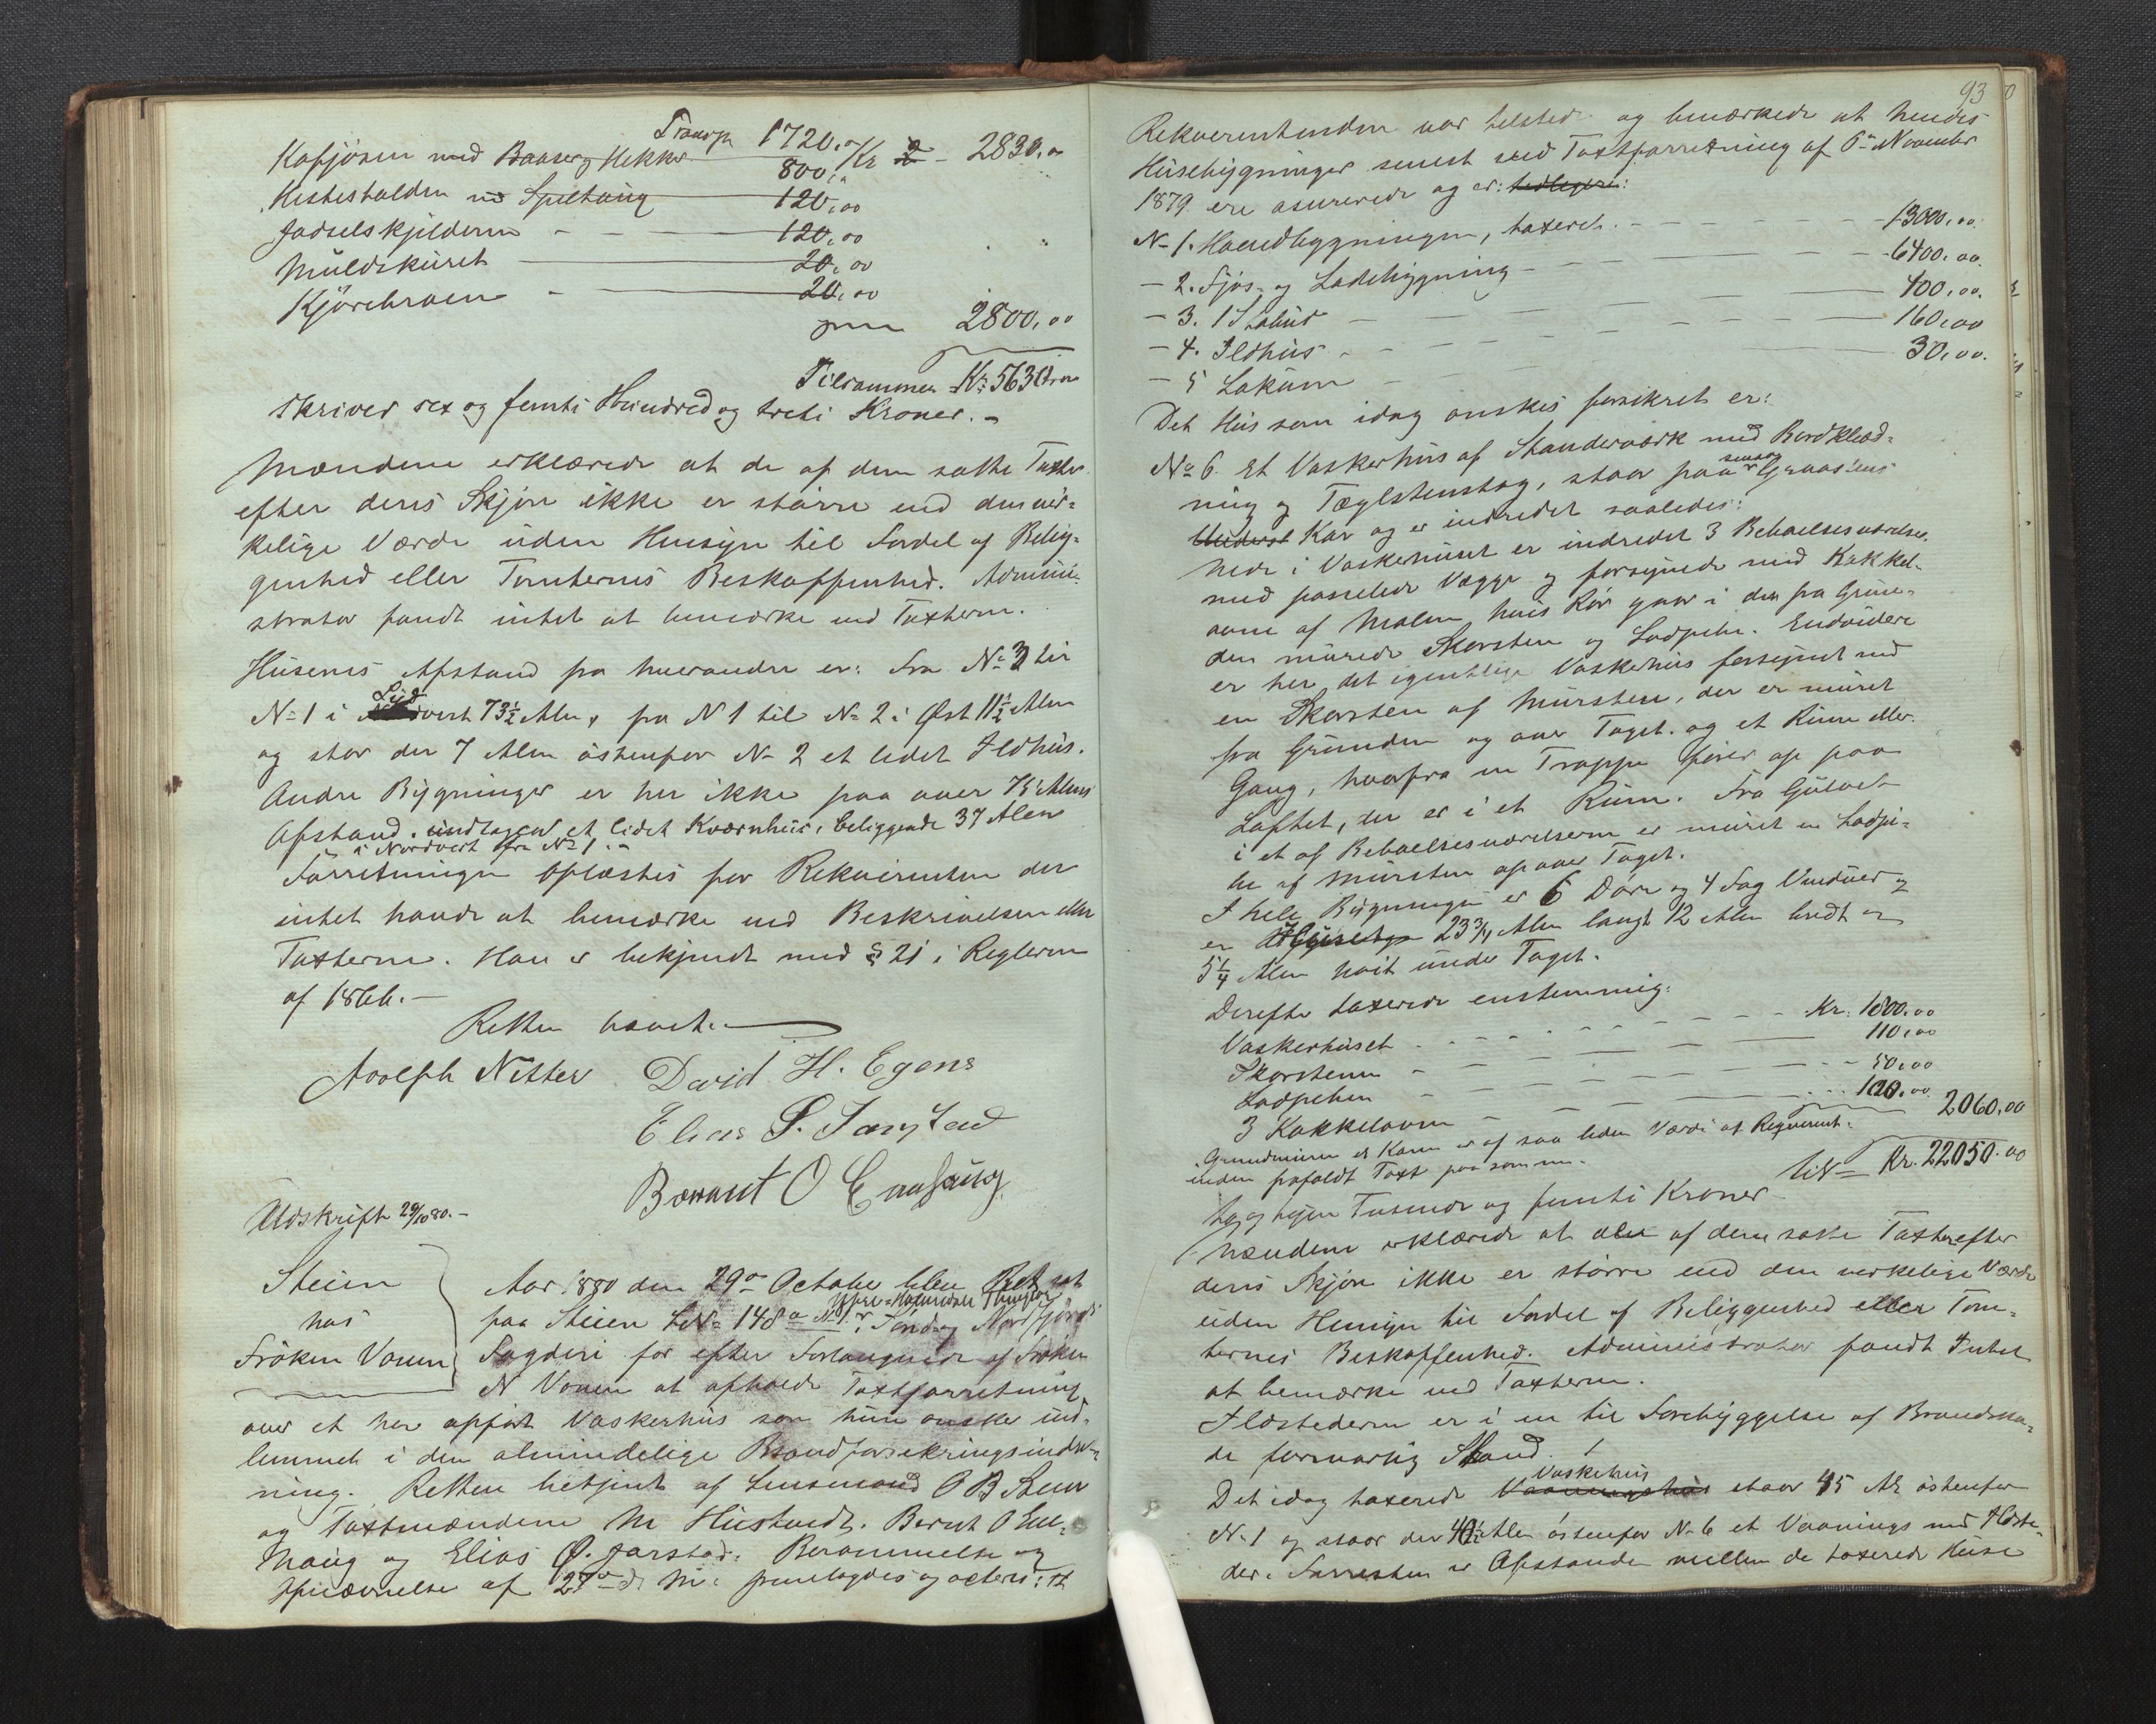 Transp 1720,00 Kr 2830,00
Kofjösen med Baaser og Hekker 800,00
Hestestalden m Spiltaug 120,00
Fodselskjelderen 120,00
Muldskuret 20,00
Kjörebroen 20,00
2800,00
Tilsammen Kr. 5630
skriver sex og femti Hundred og treti Kroner.
Mændene erklærede at de af dem satte Taxter
efter deres Skjön ikke er större end den vir-
kelige Værdi uden Hensyn til Fordel af Belig-
genhed eller Tomternes Beskaffenhed. Admini-
strator fandt intet at bemærke ved Taxterne.
Husenes Afstand fra hverandre er: fra No 3 til
No 1 i Sydvest 73½ Alen, fra N 1 til No 2 i Øst 11½ Alen
og staar der 7 Alen östenfor No 2 et lidet Ildhus.
Andre Bygninger er her ikke paa over 75 Alens
Afstand. undtagen et lidet Kværnhus, beliggende 37 Alen
i Nordvest fra No 1.
Forretningen oplæstes for Rekvirenten der
intet havde at bemærke ved Beskrivelsen eller
Taxterne. Han er bekjendt med § 21 i Reglerne
af 1866.
Retten hævet.
Adolph Nitter David H. Egens
Elias S. Jarstad
Bernt O Enehaug
Udskrift 29/10 80.
Steien
hos
Fröken Vonen
Aar 1880 den 29de October blev Ret sat
paa Steien LNo 148 a No 1 i Ytre-Holmedals Thinglag Sönd og Nordfjords
Fogderi for efter Forlangende af Fröken
N Vonen at afholde Taxtforretning
over et her opfört Vaskerhus som hun önsker ind-
lemmet i den almindelige Brandforsikringsindret-
ning. Retten betjent af Lensmand O B Steen
og Taxtmændene M Hustvedt. Bernt O Ene-
haug og Elias Ø. Jarstad. Berammelse og
Opnævnelse af 27de d. M. fremlagdes og acteres:
93
Rekverentinden var tilstede og bemærkede at hendes
Husebygninger senest ved Taxtforretning af 6te November
1879 ere asurerede og er:
No 1. Hovedbygningen, taxeret 13000,00
— 2. Fjös- og Ladebygning 6400,00
— 3. 1 Stabur 400,00
— 4. Ildhus 160,00
— 5 Lokum 30,00
Det Hus som idag önskes forsikret er:
No 6. Et Vaskerhus af Standerværk med Bordklæd-
ning og Tæglstenstag, staar paa Graastens
Kar og er indredet saaledes:
Nede i Vaskerhuset er indredet 3 Beboelsesværelser
med panelede Vægge og forsynede med Kakkel-
ovne af Malm, hvis Rör gaar i den fra Grun-
den murede Skorsten og Lodpibe. Endvidere
er her det egentlige Vaskerhus forsynet med
en Skorsten af Mursten, der er muret
fra Grunden og over Taget. og et Rum eller
Gang, hvorfra en Trappe förer op paa
Loftet, der er i et Rum. Fra Gulvet
i et af Beboelsesværelserne er muret en Lodpi-
be af Mursten op over Taget.
I hele Bygningen er 6 Döre og 4 Fag Vinduer og
er 23¾ Alen langt 12 Alen bredt og
5¼ Alen höit under Taget.
Derefter taxerede enstemmig:
Vaskerhuset Kr. 1800,00
Skorstenen 110,00
Lodpiben 50,00
3 Kakkelovne 100,00 2060,00
Grundmuren er Karen er af saa liden Værdi at Reqverent.
inden frafaldt Taxt paa samme.
Kr. 22050.00
to og tyve Tusende og femti Kroner
Mændene erklærede at de af dem satte Taxter efter
deres Skjön ikke er större end den virkelige Værdi
uden Hensyn til Fordel af Beliggenhed eller Tom-
ternes Beskaffenhed. Administrator fandt Intet
at bemærke ved Taxterne.
Ildstederne er i en til Forebyggelse af Brandska-
de forsvarlig Stand.
Det idag taxerede Vaskehus staar 45 Al. östenfor
No 1 og staar der 40½ Alen östenfor No 6 et Vaanings med Ildste-
der. Forresten er Afstanden mellem de taxerede Huse